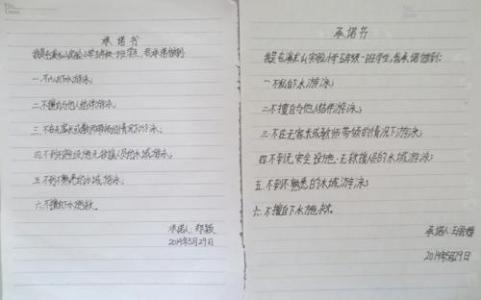 承诺书
我是 实验小学 级一班学生,我承诺做到:
一.不私自下水游泳。
二.不擅自与他人结伴游泳。
三.不在无家长或教师带领的情况下游泳。
四.不到无安全设施、无救援人员的水域游泳。
五.不到不熟悉的水域游泳。
六.不擅自下水施救。
承诺人:郑
2014年5月29日
承诺书
我是 山实验小学 年级一班学生,我承诺做到:
一.不私自下水游泳;
二.不擅自与他人结伴游泳;
三.不在无家长或教师带领的情况下游泳;
四.不到无安全设施、无救援人员的水域游泳;
五.不到不熟悉的水域游泳;
六.不擅自下水施救。
承诺人:王
2014年5月29日